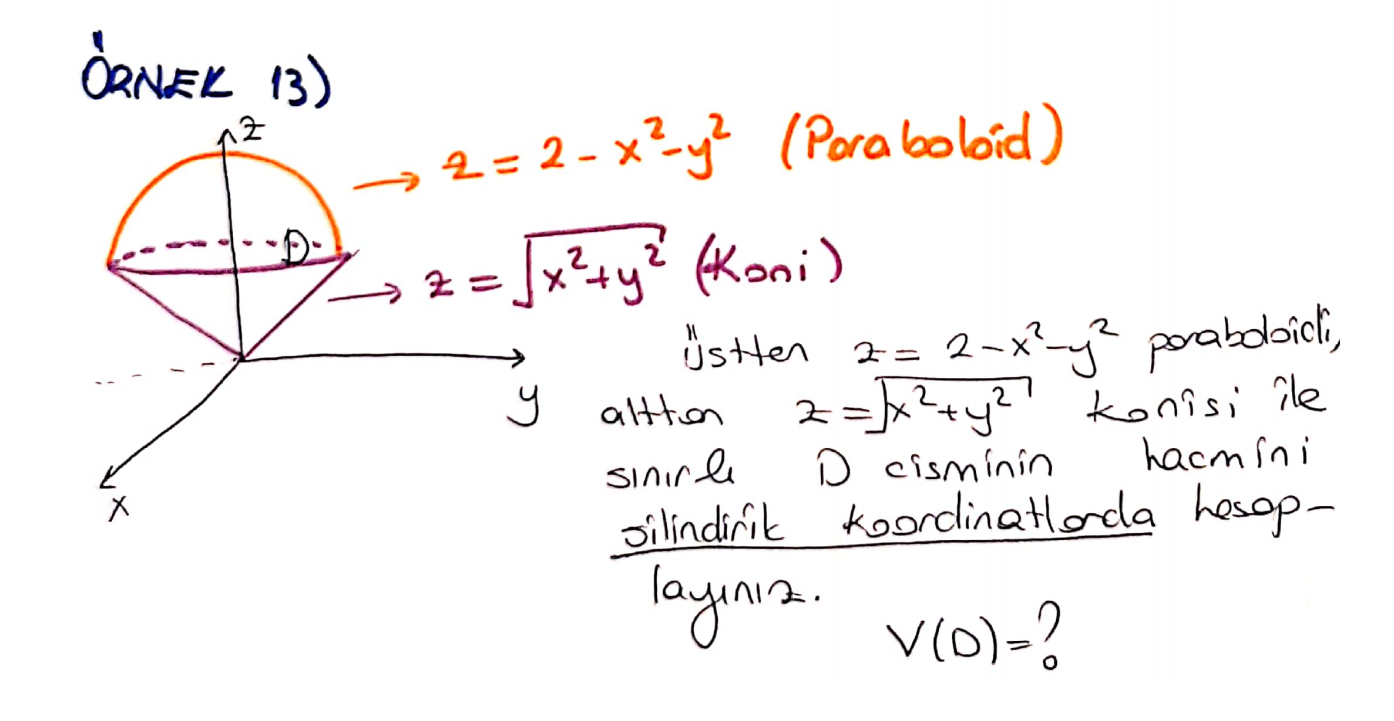 ÖRNEK 13)
z
→ z = 2 - x² - y² (Paraboloid)
D
→ z = √(x² + y²) (Koni)
Üstten z = 2 - x² - y² paraboloidi,
y alttan z = √(x² + y²) konisi ile
sınırlı D cisminin hacmini
x silindirik koordinatlarda hesap-
layınız.
V(D) = ?